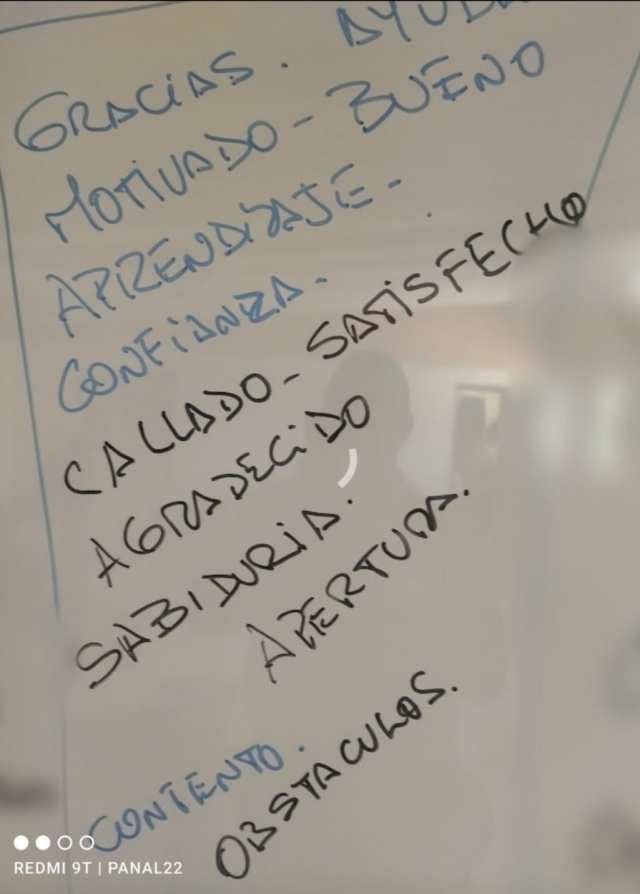 GRACIAS.
MOTIVADO - BUENO
APRENDIZAJE -
CONFIANZA.
CALLADO - SATISFECHO
AGRADECIDO
SABIDURIA.
APERTURA.
CONTENTO.
OBSTACULOS.
REDMI 9T | PANAL22